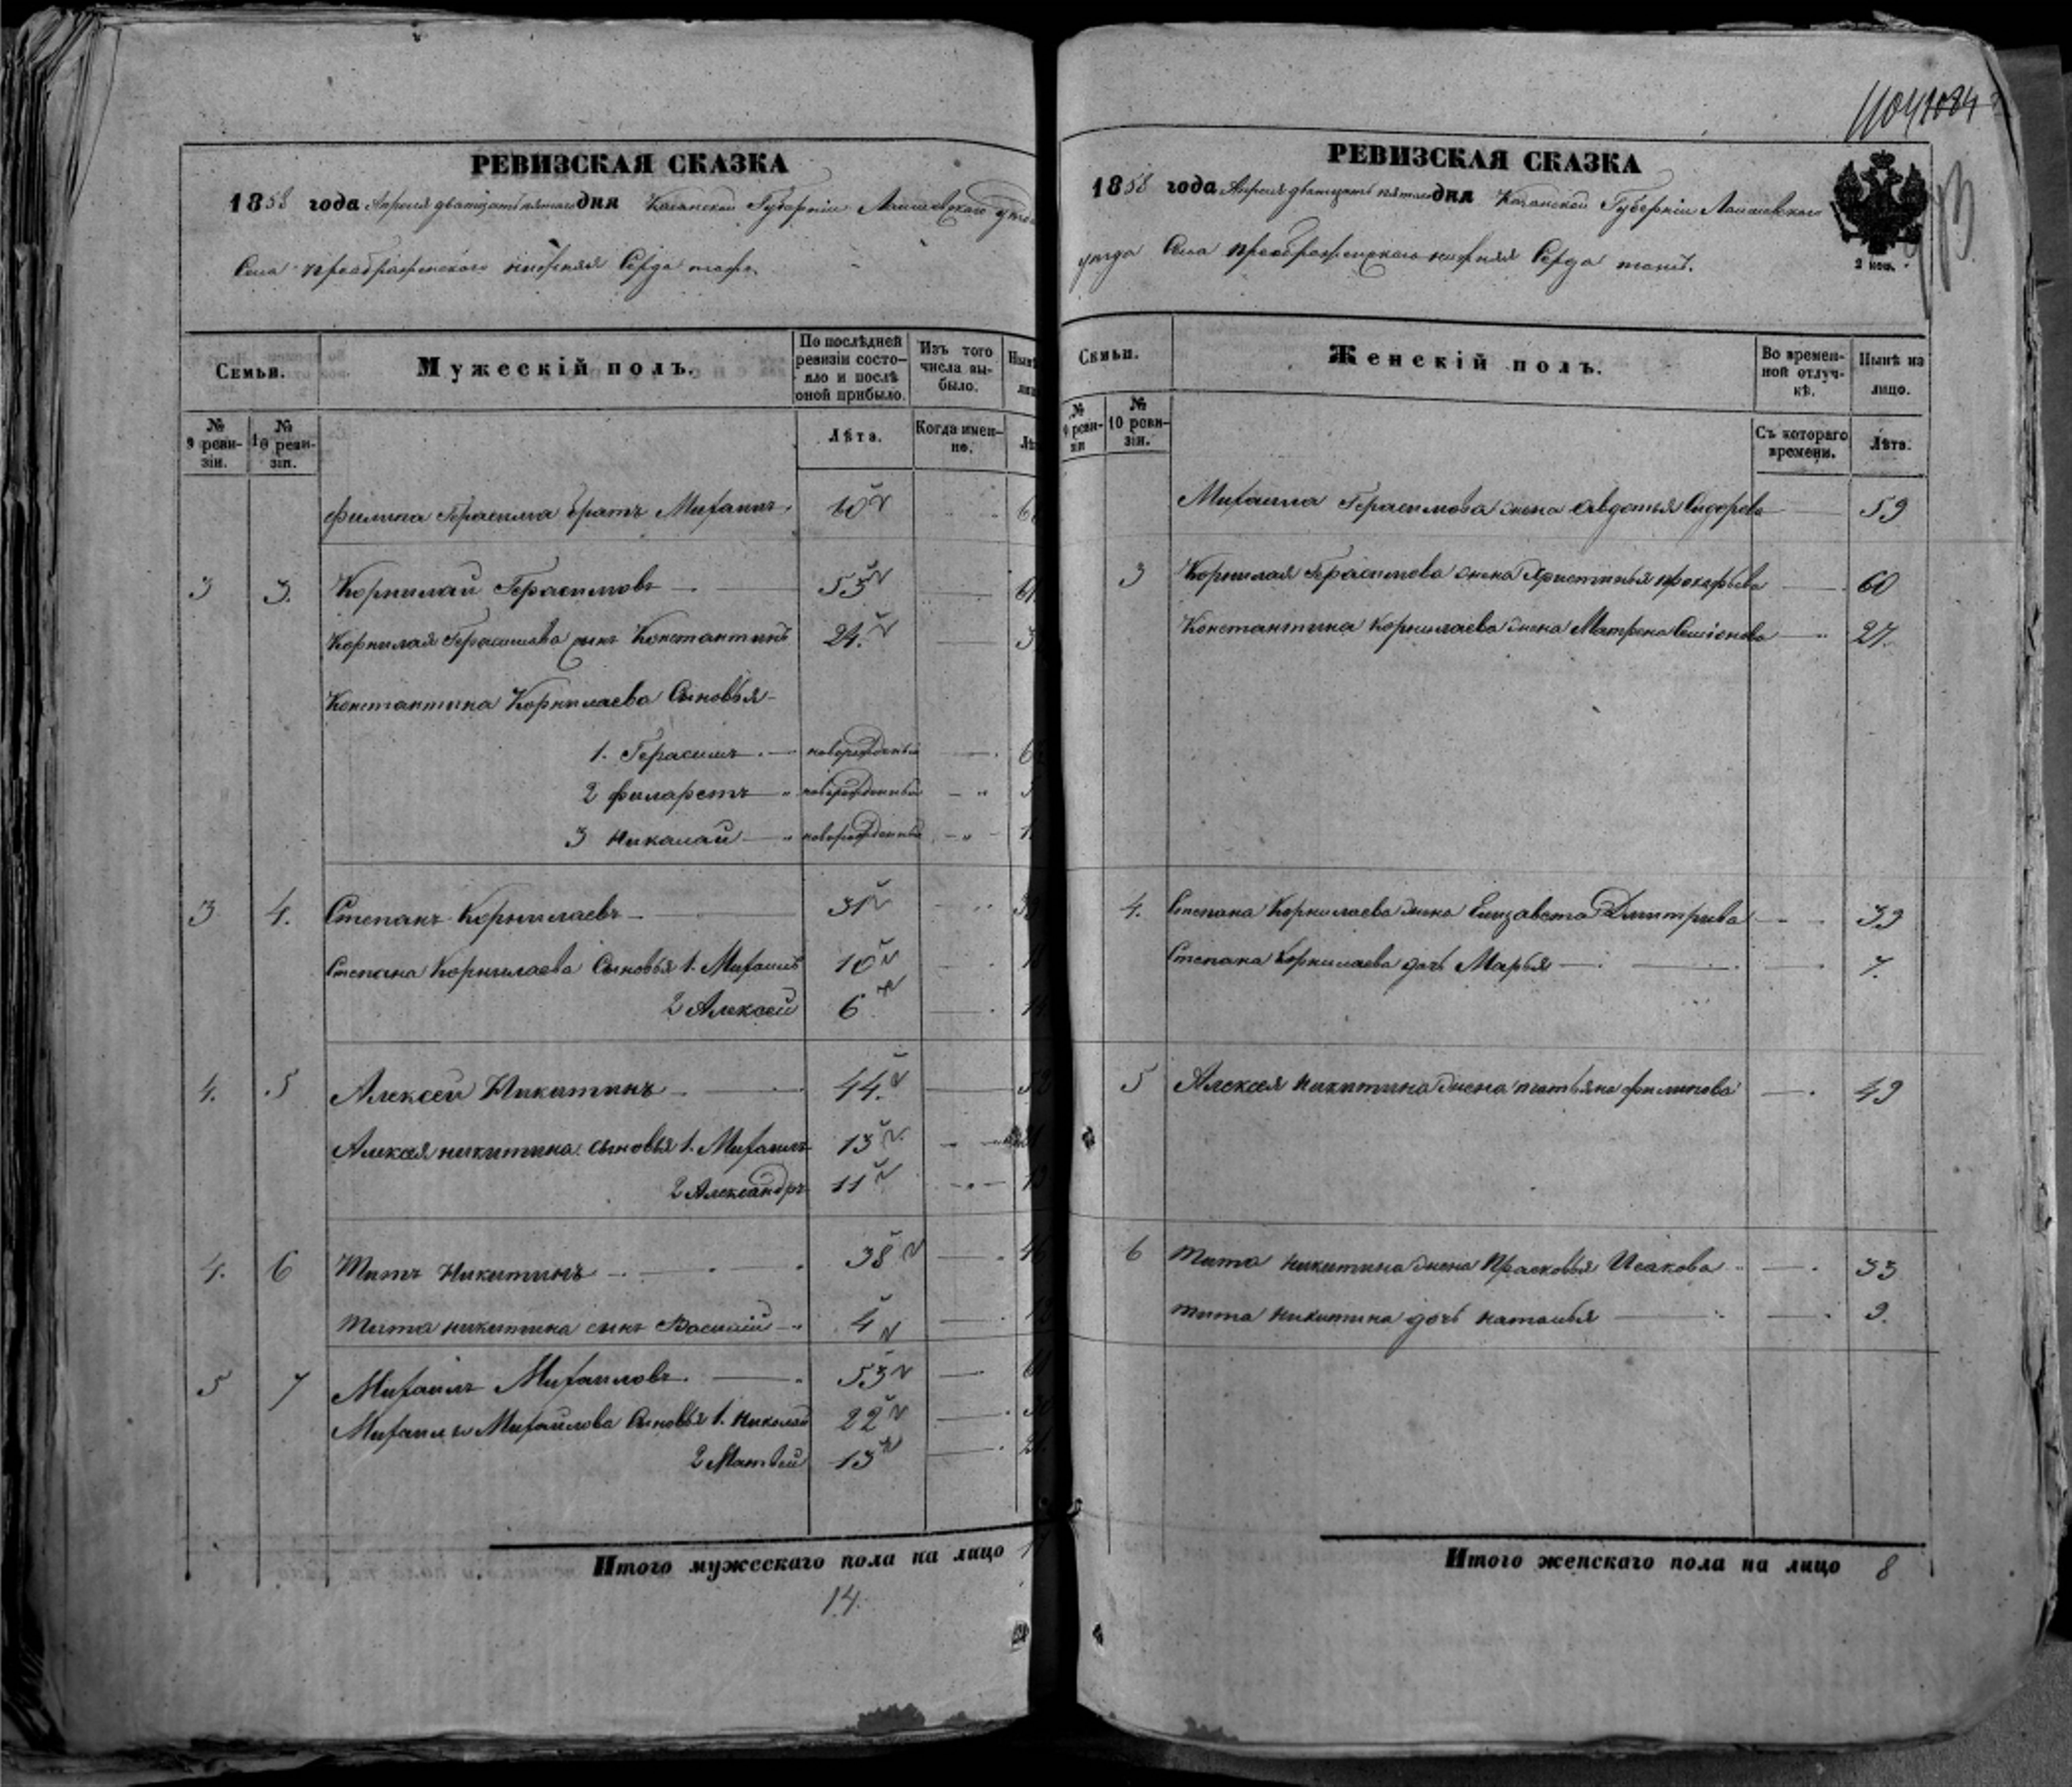 РЕВИЗСКАЯ СКАЗКА
1858 года Апреля двадцать пятаго дня Казанской Губерніи Лаишевскаго
Села преображенскаго нижняя Серда тожъ
Семьи.
Мужескій полъ.
По послѣдней ревизіи состояло и послѣ оной прибыло.
Изъ того числа выбыло.
№ 9 ревизіи.
№ 10 ревизіи.
Лѣта.
Когда именно.
Филипа Герасима братъ Михаилъ 60
3 3. Корнилай Герасимовъ 53
Корнилая Герасимова сынъ Константинъ 24.
Константина Корнилаева Сыновья
1. Герасимъ новорожденный
2 филаретъ новорожденный
3 Николай новорожденный
3 4. Степанъ Корнилаевъ 31
Степана Корнилаева Сыновья 1. Михаилъ 10
2 Алексей 6
4. 5 Алексей Никитинъ 44.
Алексея никитина сыновья 1. Михаилъ 13
2 Александръ 11
4. 6 Титъ Никитинъ 38
Тита никитина сынъ Василий 4
5 7 Михаилъ Михаиловъ 53
Михаилы Михаилова Сыновья 1. Николай 22
2 Матвей 13
Итого мужескаго пола на лицо
14.
1084
РЕВИЗСКАЯ СКАЗКА
1858 года Апреля двадцать пятаго дня Казанской Губерніи Лаишевскаго
уезда Села преображенскаго нижняя Серда тожъ.
2 коп.
Семьи.
Женскій полъ.
Во временной отлучкѣ.
Нынѣ на лицо.
№ 9 ревизіи
№ 10 ревизіи.
Съ котораго времени.
Лѣта.
Михаила Герасимова жена Авдотья Сидорова 59
3 Корнилая Герасимова жена Христинья прокофьева 60
Константина Корнилаева жена Матрена Семіонова 27.
4. Степана Корнилаева жена Елизавета Дмитрива 39
Степана Корнилаева дочь Марья 7.
5 Алексея никитина жена татьяна филипова 49
6 Тита никитина жена Прасковья Исакова 33
Тита никитина дочь наталья 9.
Итого женскаго пола на лицо 8